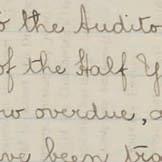 to the Audito
of the Half Y
ow overdue, a
ave been tra